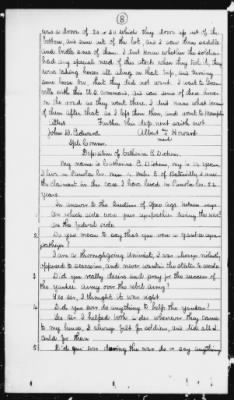 (8)
was a dozen of 20 or 30 which they drove up out of the
bottom, and some out of the lot, and I saw them saddle
and bridle some of them. I dont know whether the soldiers
had any special need of this stock when they took it, they
were taking horses all along on that trip, and turning
some loose that they did not want. I went to
with this U.S. command, and saw some of these horses
on the road as they went there. I dont know what became
of them after that as I left them then, and went to Memphis
Further this dep. next saith not.
John D. Edwards      Albert Howard
Spl. Commr.      mark
Deposition of Catherine B. Dickens.
My name is Catherine B. Dickens, my is 52 years
I live in Panola Co. Miss. 2 miles E. of Batesville, I am
the claimant in this case. I have lived in Panola Co. 32
years.
In answer to the question of Spec. Agt. witness says
1 On which side were your sympathies during the war?
on the federal side.
2 Do you mean to say that you were a yankee sym-
pathizer?
I am a thoroughgoing Unionist, I was always violently
opposed to secession, and never wanted the states to secede.
3 Did you really desire and pray for the success of
the yankee army over the rebel army?
Yes sir, I thought it was right.
4 Did you ever do anything to help the yankees?
Yes sir I helped both sides whenever they came
to my house, I always felt for soldiers, and did all I
could for them.
5 Did you ever during the war do or say anything